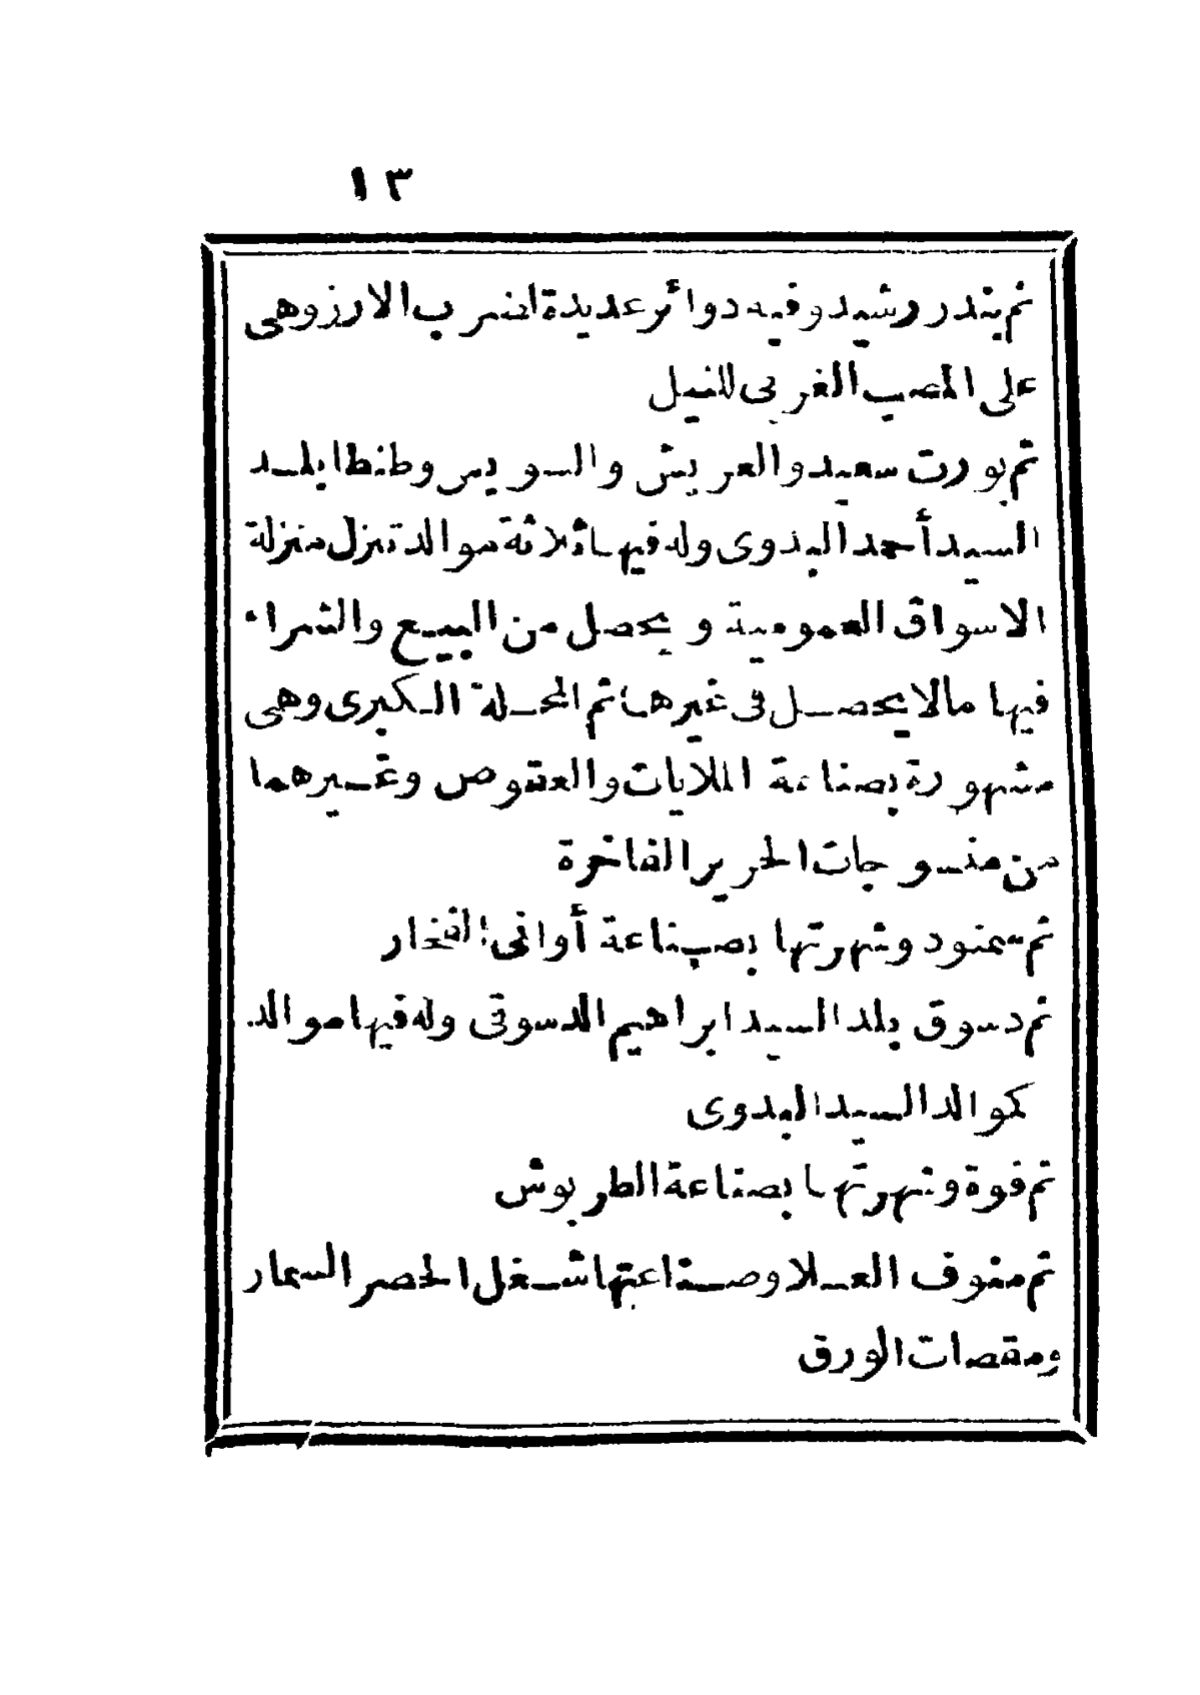 ١٣
ثم بندر رشيد وفيه دوائر عديدة لضرب الارز وهى
على المصب الغربى للنيل
ثم بورت سعيد والعريش والسويس وطنطا بلد
السيد أحمد البدوى وله فيها ثلاثة موالد تنزل منزلة
الاسواق العمومية ويحصل من البيع والشراء
فيها مالا يحصل فى غيرها ثم المحلة الكبرى وهى
مشهورة بصناعة الملايات والعقوص وغيرهما
من منسوجات الحرير الفاخرة
ثم سمنود وشهرتها بصناعة أوانى الفخار
ثم دسوق بلد السيد ابراهيم الدسوقى وله فيها موالد
كموالد السيد البدوى
ثم فوة وشهرتها بصناعة الطربوش
ثم منوف العلا وصناعتها شغل الحصر السمار
ومقصات الورق